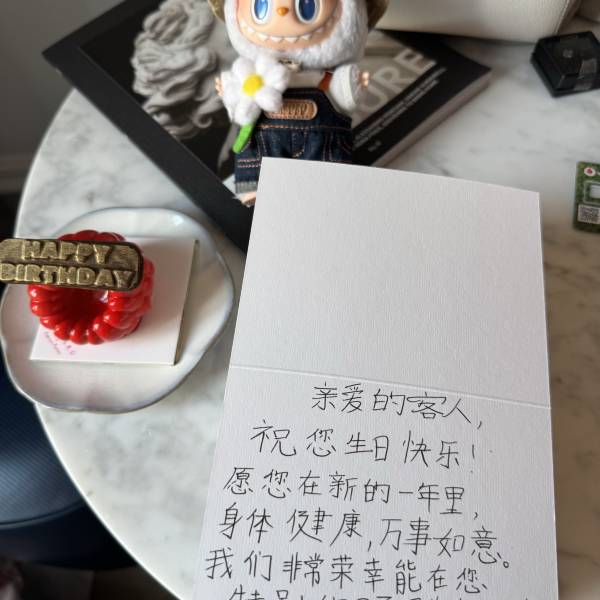 HAPPY
BIRTHDAY
URE
亲爱的客人,
祝您生日快乐!
愿您在新的一年里,
身体健康,万事如意。
我们非常荣幸能在您